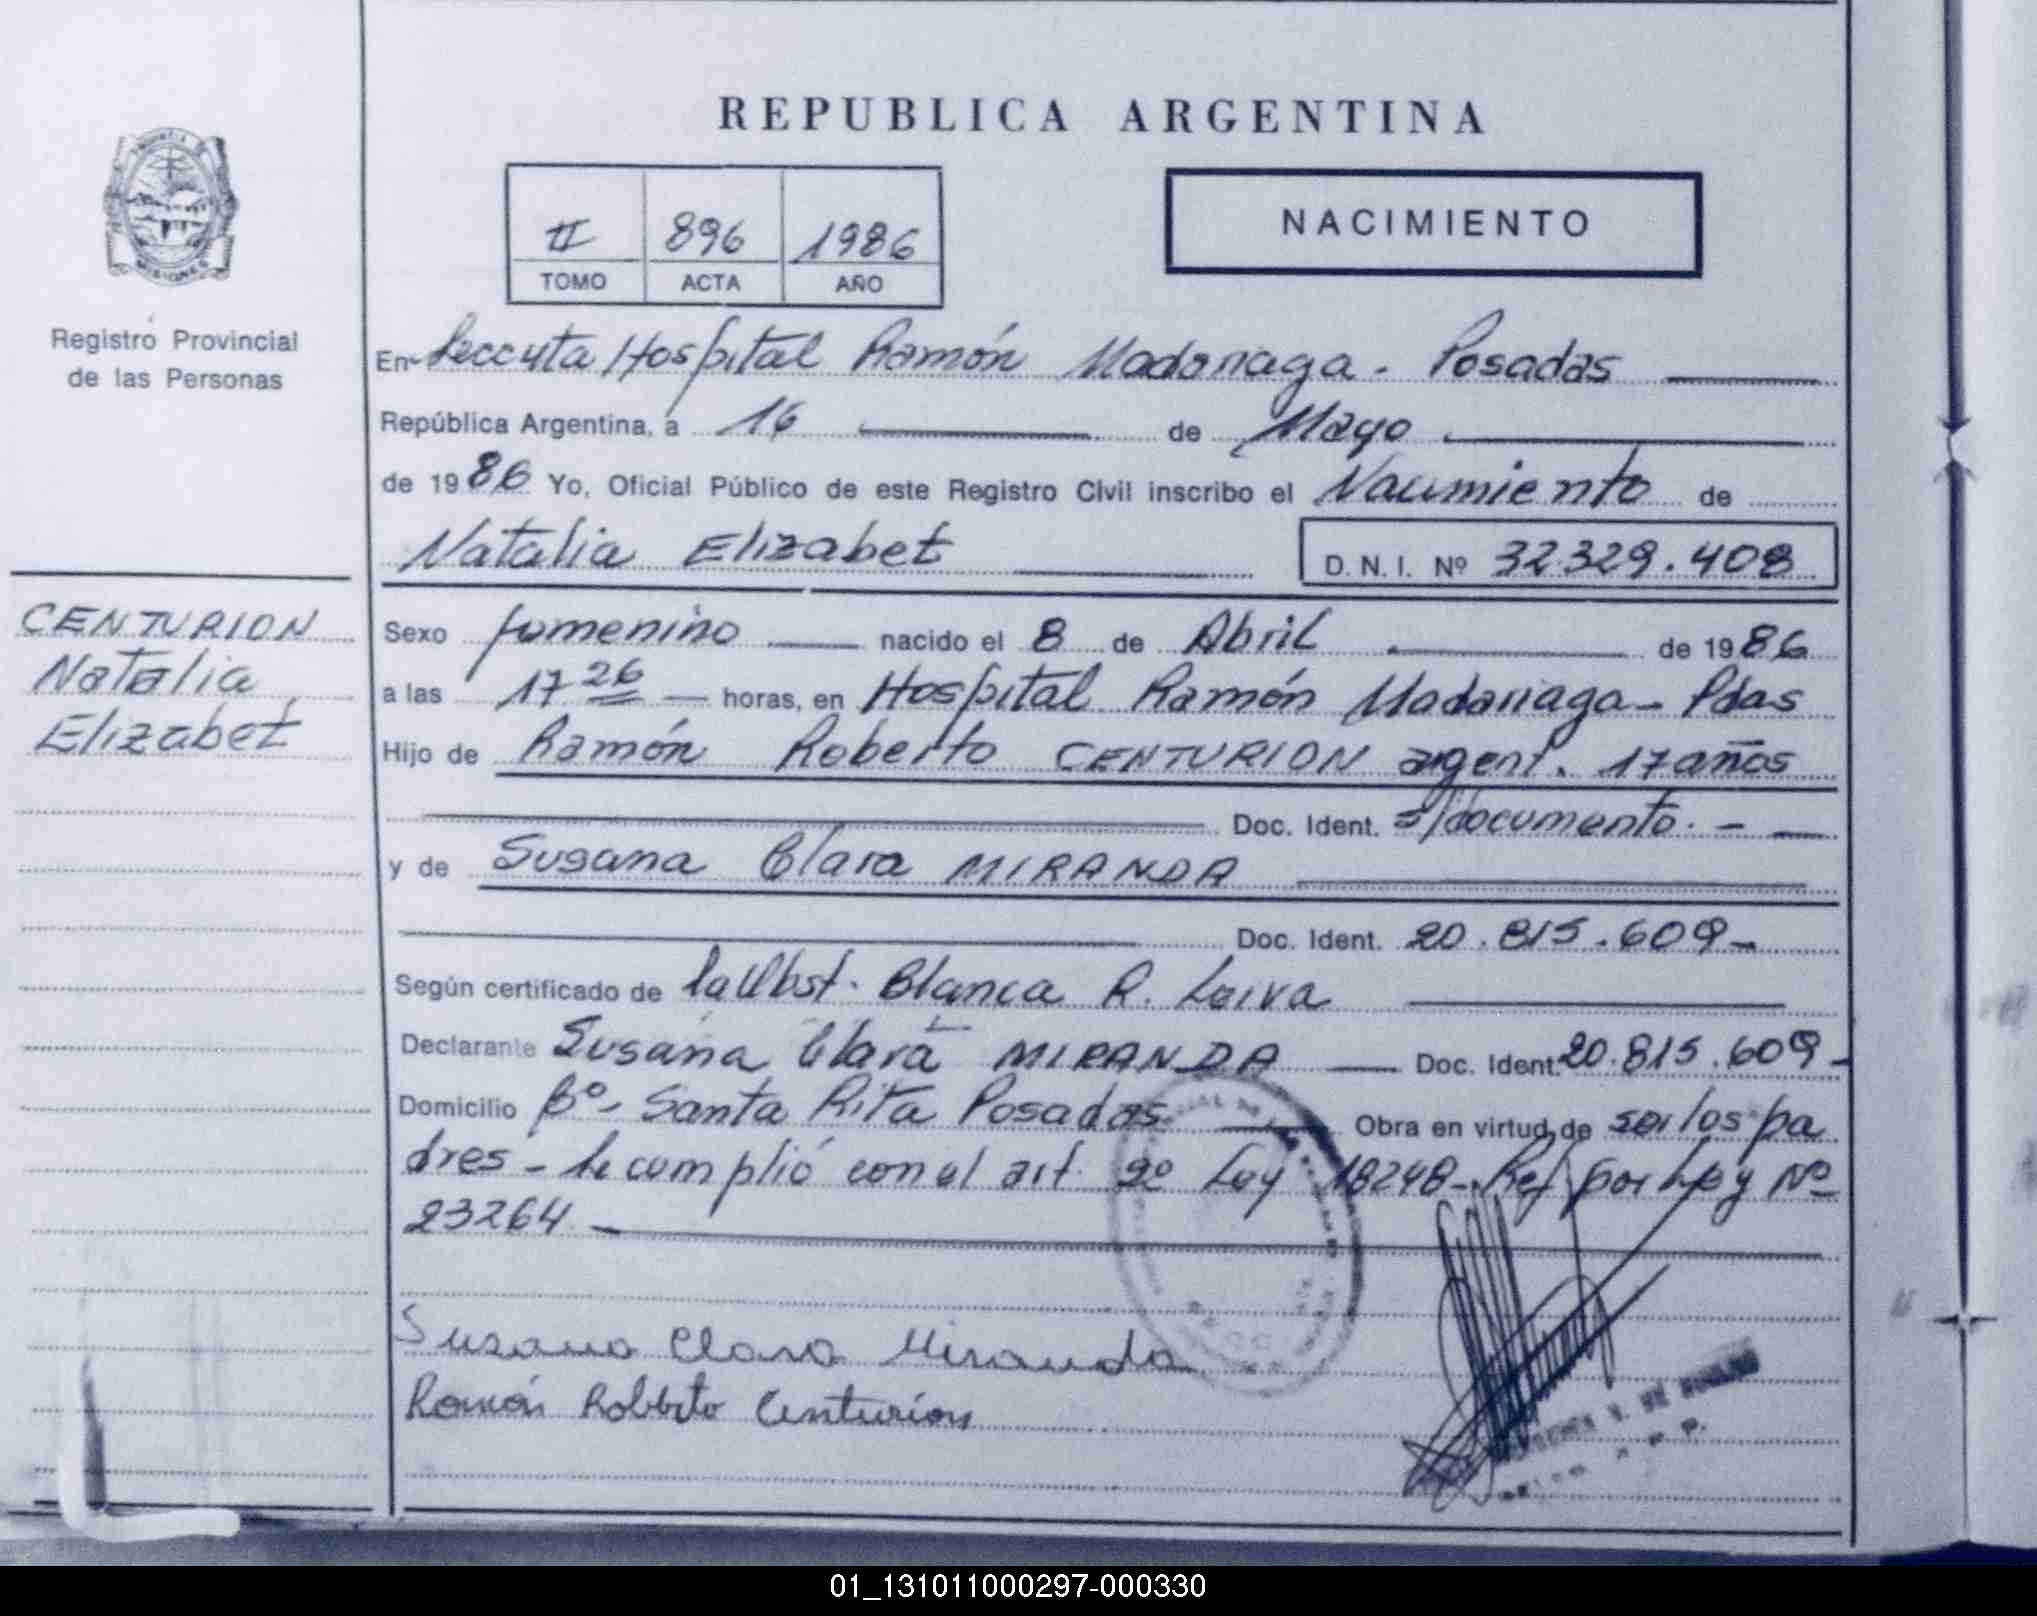 REPUBLICA ARGENTINA
II 896 1986
TOMO ACTA AÑO
NACIMIENTO
MISIONES
Registro Provincial
de las Personas
CENTURION
Natalia
Elizabet
En Seccuta Hospital Ramón Madariaga - Posadas
República Argentina, a 16 de Mayo
de 1986 Yo, Oficial Público de este Registro Civil inscribo el Nacimiento de
Natalia Elizabet
D. N. I. Nº 32.329.408
Sexo femenino nacido el 8 de Abril de 1986
a las 17 26 horas, en Hospital Ramón Madariaga - Pdas
Hijo de Ramón Roberto CENTURION argent. 17 años
Doc. Ident. s/documento. -
y de Susana Clara MIRANDA
Doc. Ident. 20.815.609 -
Según certificado de la Obst. Blanca R. Leiva
Declarante Susana Clara MIRANDA Doc. Ident. 20.815.609 -
Domicilio Bº - Santa Rita Posadas Obra en virtud de ser los pa
dres - Se cumplió con el art. 2º Ley 18248 - Ref por Ley Nº
23264
Susana Clara Miranda
Ramón Roberto Centurión
01_131011000297-000330